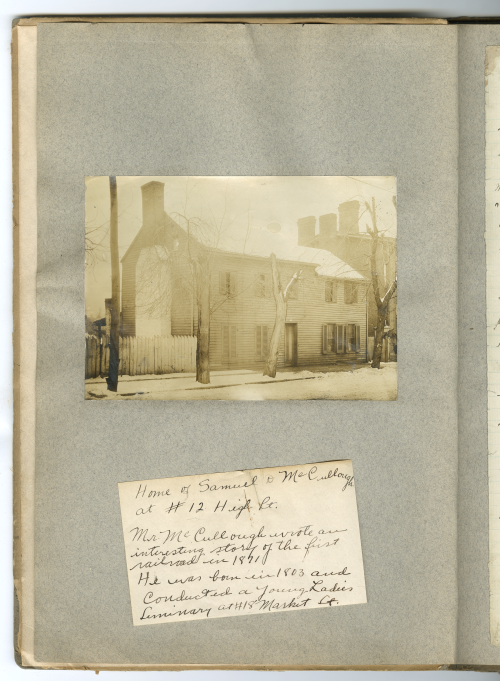 Home of Samuel D McCullough
at #12 High St.
Mr McCullough wrote an
interesting story of the first
railroad in 1871
He was born in 1803 and
conducted a Young Ladies
Siminary at #18 Market St.